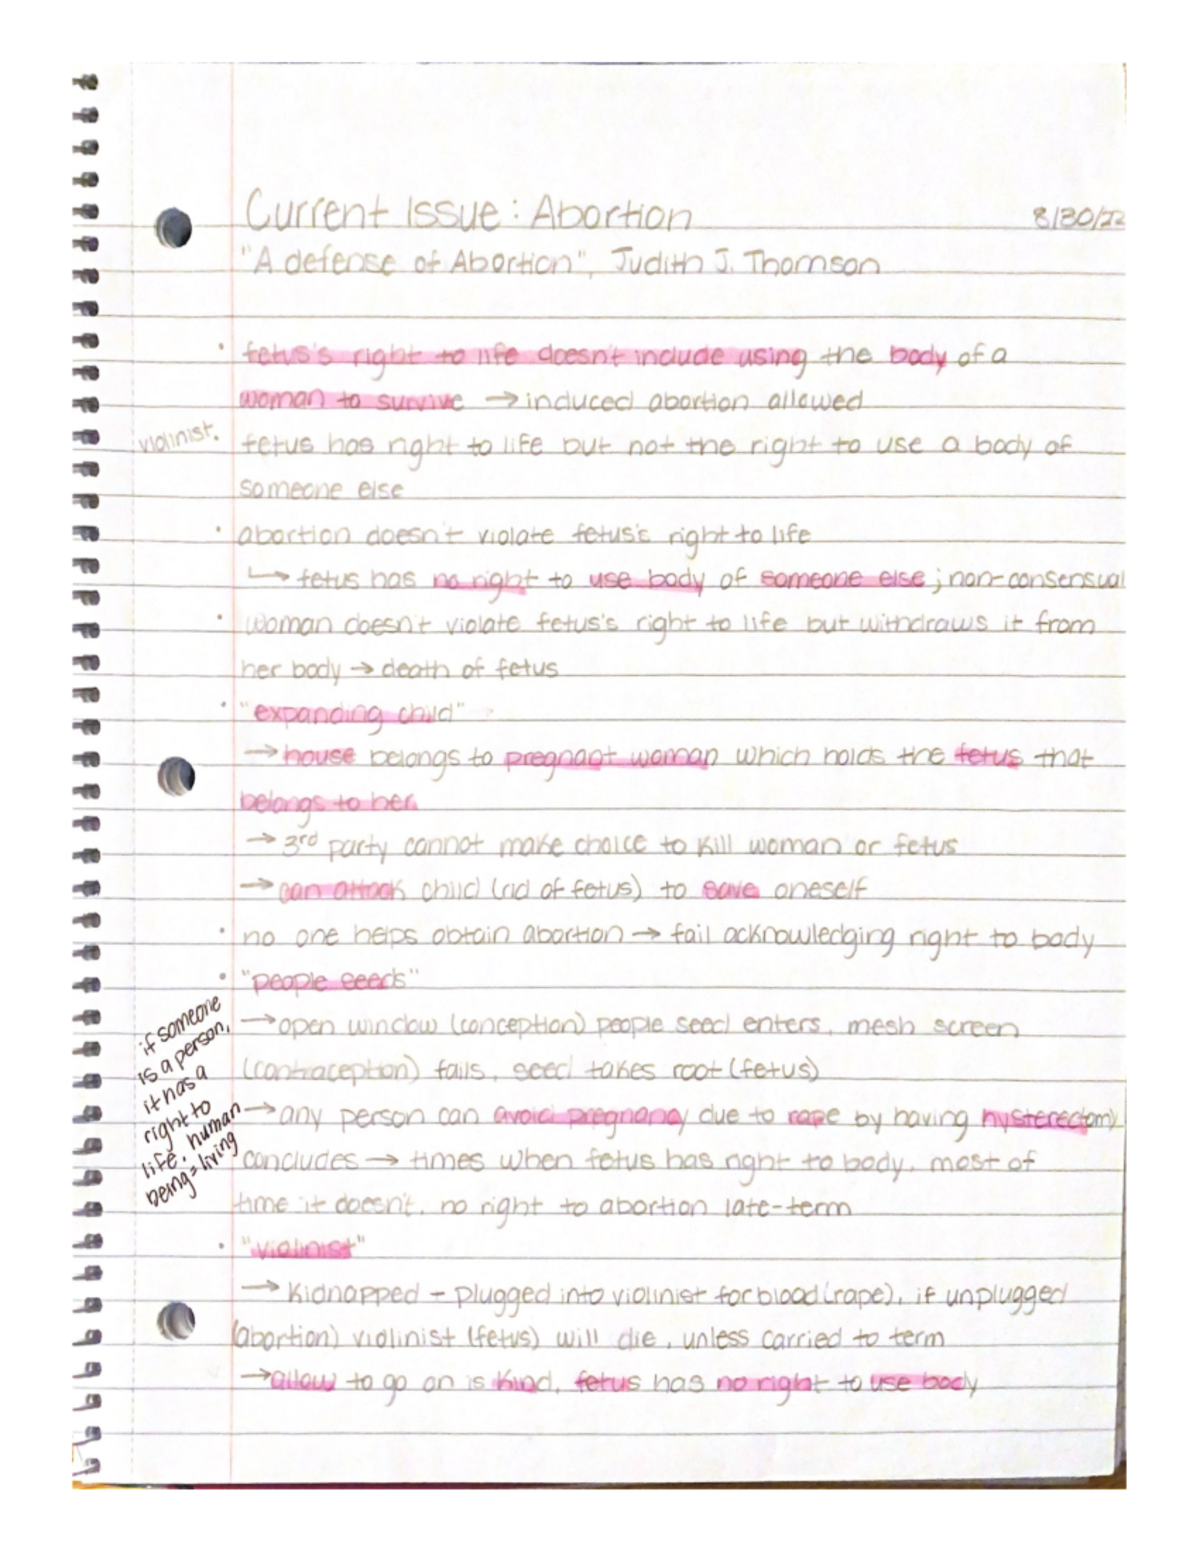 Current Issue: Abortion 8/30/22
"A defense of Abortion", Judith J. Thomson
• fetus's right to life doesn't include using the body of a
woman to survive → induced abortion allowed
violinist. fetus has right to life but not the right to use a body of
someone else
• abortion doesn't violate fetus's right to life
↳ fetus has no right to use body of someone else; non-consensual
• woman doesn't violate fetus's right to life but withdraws it from
her body → death of fetus
• "expanding child"
→ house belongs to pregnant woman which holds the fetus that
belongs to her
→ 3rd party cannot make choice to kill woman or fetus
→ can attack child (rid of fetus) to save oneself
• no one helps obtain abortion → fail acknowledging right to body
• "people seeds"
→ open window (conception) people seed enters, mesh screen
(contraception) fails, seed takes root (fetus)
→ any person can avoid pregnancy due to rape by having hysterectomy
concludes → times when fetus has right to body, most of
time it doesn't, no right to abortion late-term
if someone
is a person,
it has a
right to
life, human
being = living
• "violinist"
→ Kidnapped - plugged into violinist for blood (rape), if unplugged
(abortion) violinist (fetus) will die, unless carried to term
→ allow to go on is kind, fetus has no right to use body